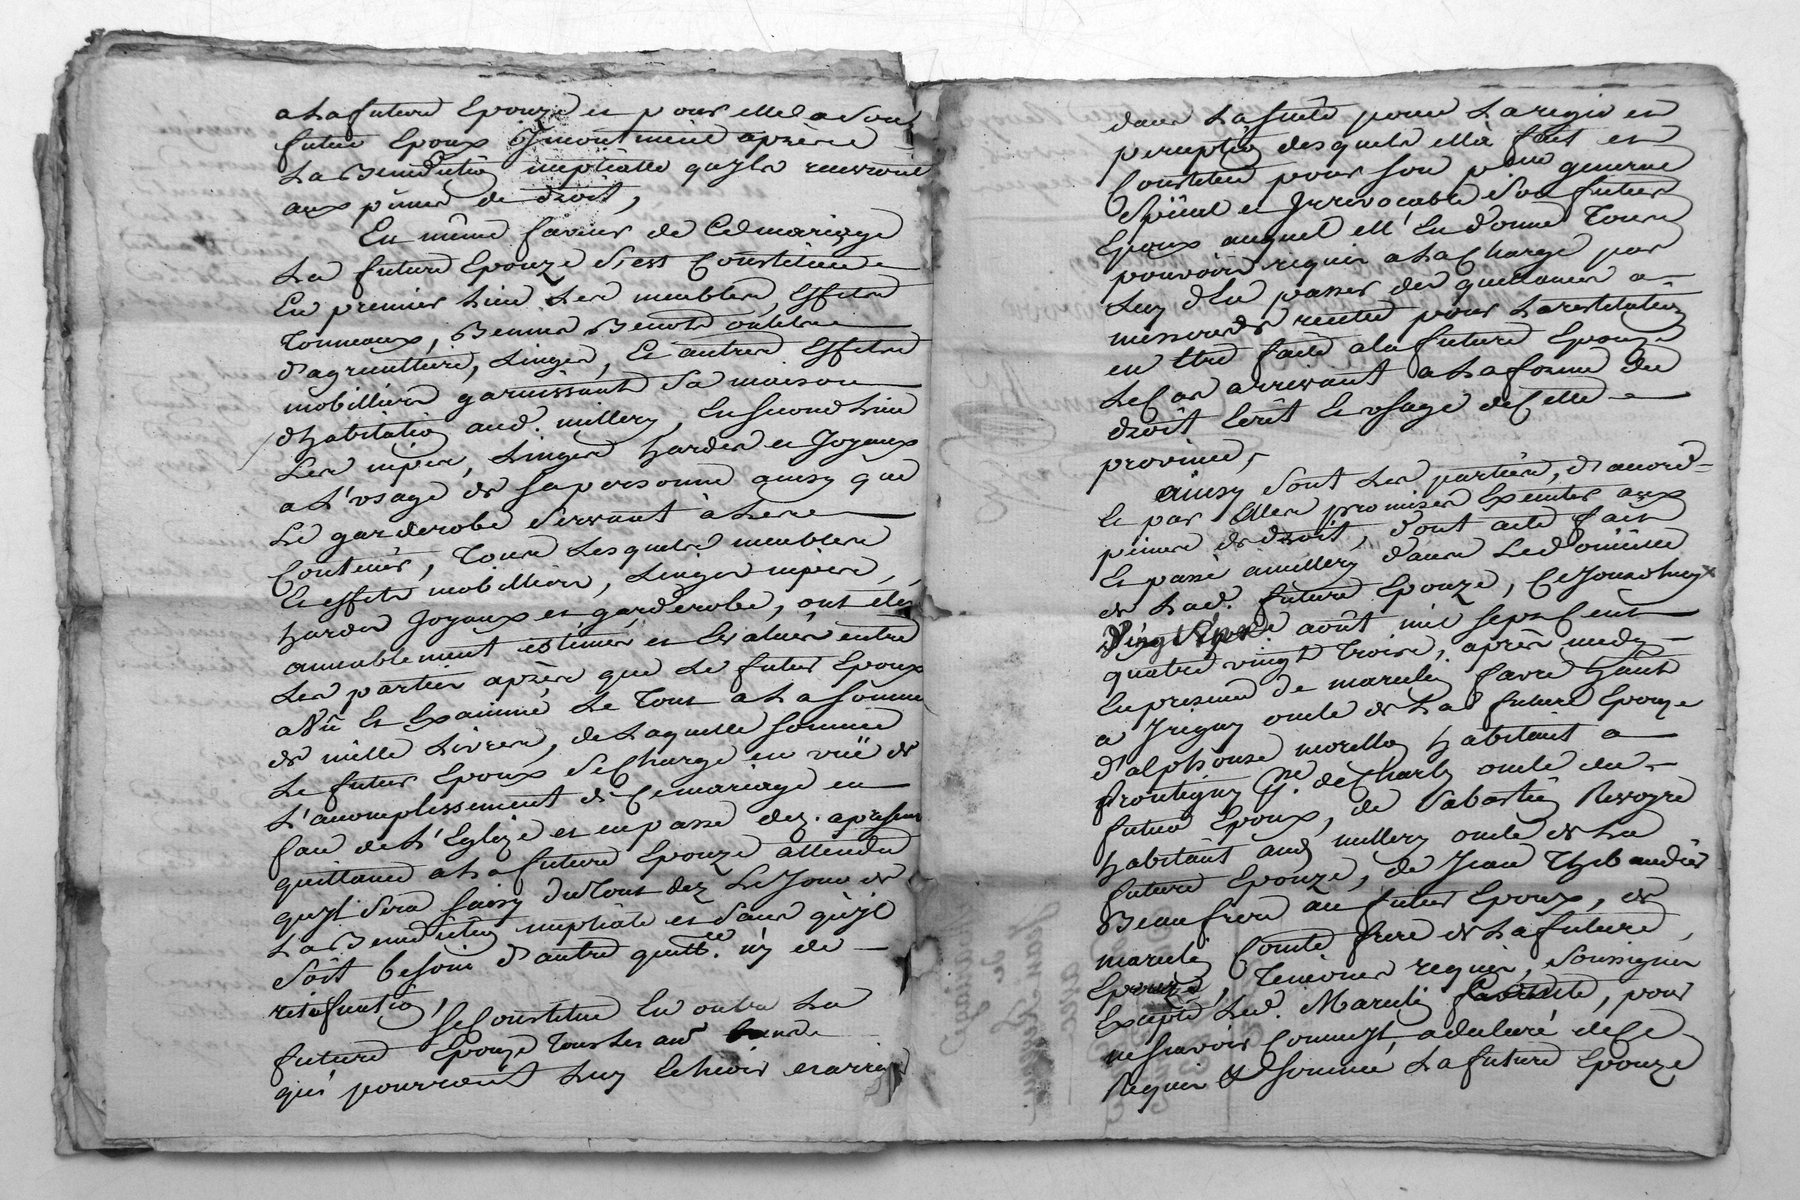 a La future Epouze et pour elle a son
futur Epoux Incontinent après
La Benediction nuptialle qu'jls recevront
aux peines de droit,
En même faveur de Ce mariage
La future Epouze s'est Constituée
En premier Lieu Les meubles, Effets
Tonneaux, Bennes Bennots outils
d'agriculture, Linges, Et autres Effets
mobilliers garnissant sa maison
d'habitation aud. millery, En second Lieu
Les nipes, Linges hardes et Joyaux
a L'usage de sa personne ainsy que
Le garderobe servant à Les
Contenir, Tous Lesquels meubles
Et effets mobilliers, Linges nipes,
hardes Joyaux et garderobe, ont etés
amiablement estimés et Evalués entre
Les parties après que Le futur Epoux
a vû Et Examiné Le Tout a La somme
de mille Livres, de Laquelle somme
Le futur Epoux se Charge en vuë de
L'acomplissement de Ce mariage en
face de L'Eglize et en passe dez. apresent
quittance a La future Epouze attendu
qu'jl sera saisy du Tout dez Le Jour de
La Benediction nuptiale et sans qu'jl
soit besoin d'autre quittce. ny de
Se Constitue En outre La
future Epouze Tous Les
qui pourront Luy Echeoir
dans La suitte pour La regie et
perception desquels elle fait et
Constitue pour son pcur general
spécial et Irrevocable son futur
Epoux auquel ell' En donne Tous
pouvoirs requis a La Charge par
Luy d'En passer des quittances a
en Etre faite a la future Epouze
Le Cas arrivant a La forme du
droit Ecrit Et usage de Cette
province,
ainsy sont Les parties, d'accord
Et par Elles promises Executer aux
peines de droit, dont acte fait
Et passé a millery dans Le domicille
de Lad. future Epouze, Ce Jourd'huy
août mil sept Cent
quatre vingt Trois, après midy
En presence de marcelin favre habitant
a Irigny oncle de La future Epouze
d'alphonse morellon habitant a
frontigny psse. de Charly oncle du
futur Epoux, de Sabastien Revoyre
habitant aud. millery oncle de La
future Epouze, de Jean Thibaudier
Beaufrere au futur Epoux, de
marcelin Comte frere de La future
Epouze, Temoins requis, soussignés
Excepté Led. Marcelin pour
ne sçavoir Comme jl a declaré de Ce
Requis & sommé La future Epouze